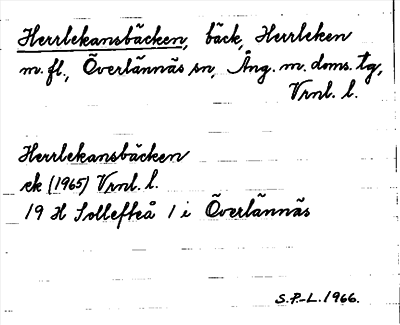 Herrlekansbäcken, bäck, Herrleken
m. fl., Överlännäs sn, Ång. m. doms. tg,
Vrnl. l.
Herrlekansbäcken
ek (1965) Vrnl. l.
19 H Sollefteå 1 i Överlännäs
S.P.-L. 1966.